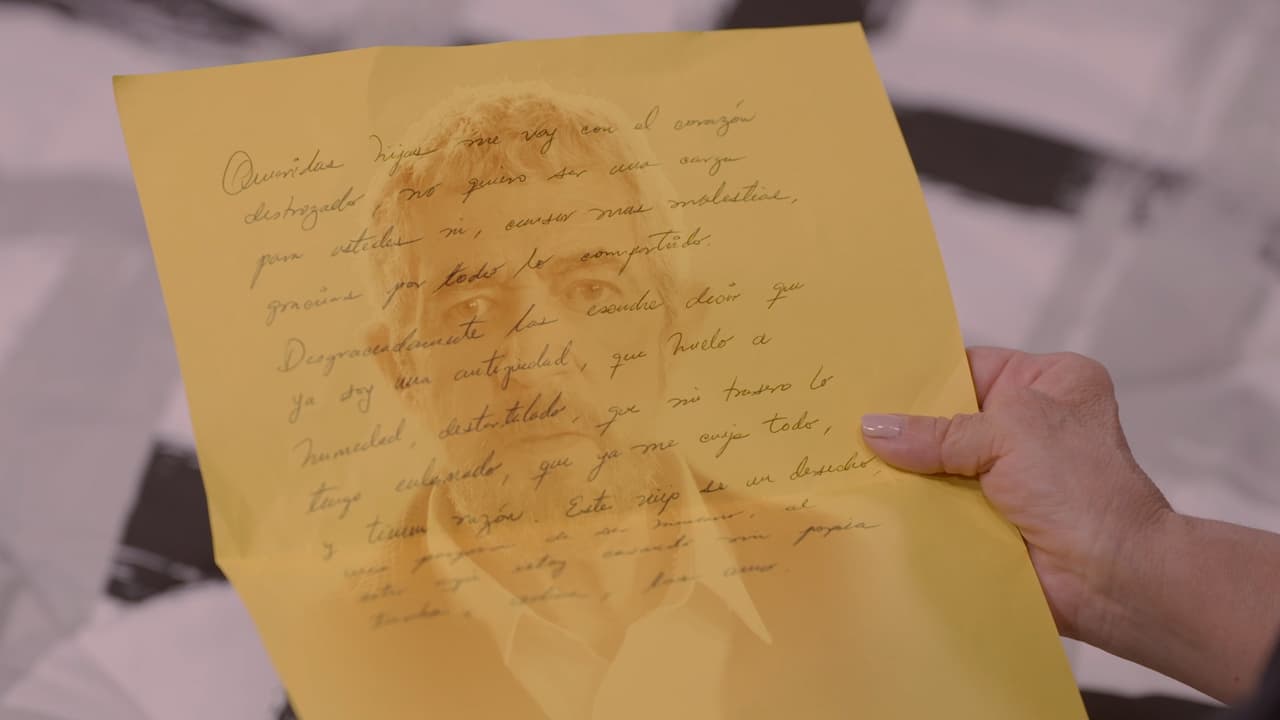 Queridas hijas me voy con el corazón
destrozado, no quiero ser una carga
para ustedes ni, causar mas molestias,
gracias por todo lo compartido.
Desgraciadamente las escuche decir que
ya soy una antigüedad, que huelo a
humedad, destartalado, que mi trasero lo
tengo, que ya me cruje todo,
y tienen razón. Este viejo es un desecho,
una de si mismo, al
estoy cavando mi propia
tumba, las amo.